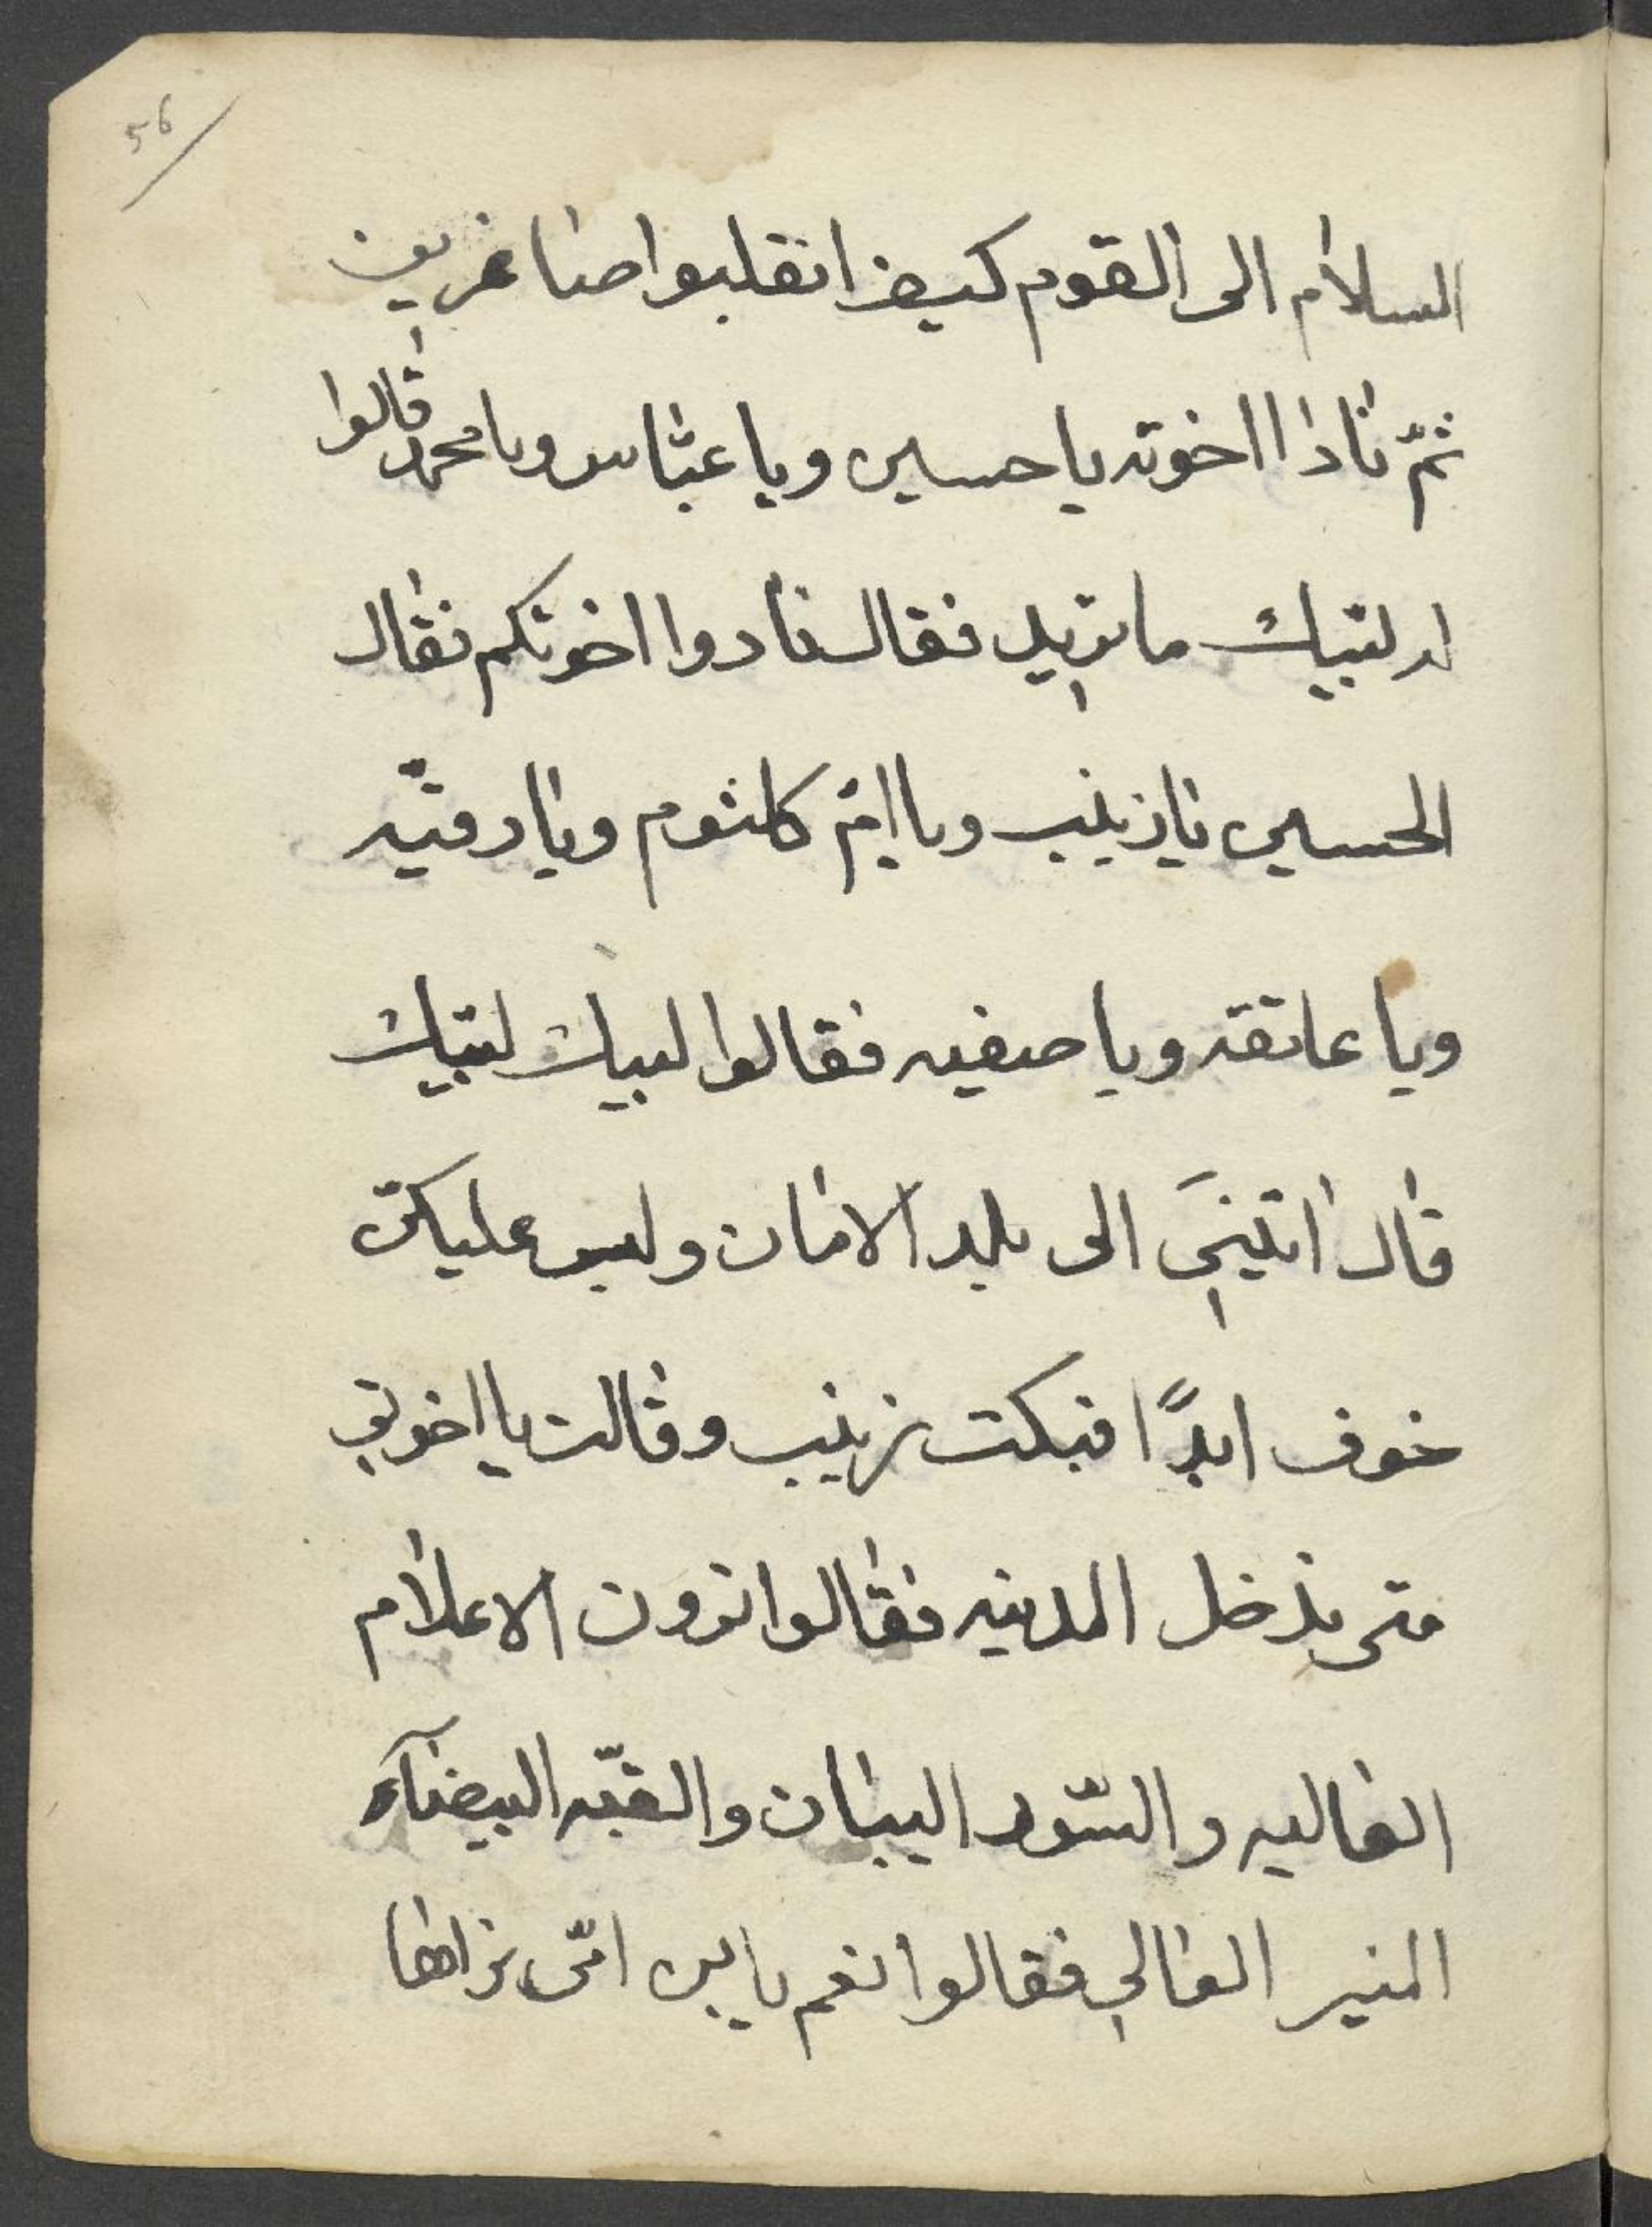 56
السلام الى القوم كيف انقلبوا صاغرين
ثمّ نادا اخوته يا حسين ويا عبّاس ويا محمد قالوا
له لبّيك ما تريد فقال نادوا اخوتكم فقال
الحسين يا زينب ويا امّ كلثوم ويا رقيّه
ويا عاتقه ويا صفيه فقالوا لبيك لبّيك
قال اتينَ الى بلد الامان وليس عليكنّ
خوف ابدًا فبكت زينب وقالت يا اخوتي
متى ندخل المدينه فقالوا ترون الاعلام
العاليه والسّور البيان والقبّه البيضآء
المنير العالي فقالوا نعم يا بن امّى نراها